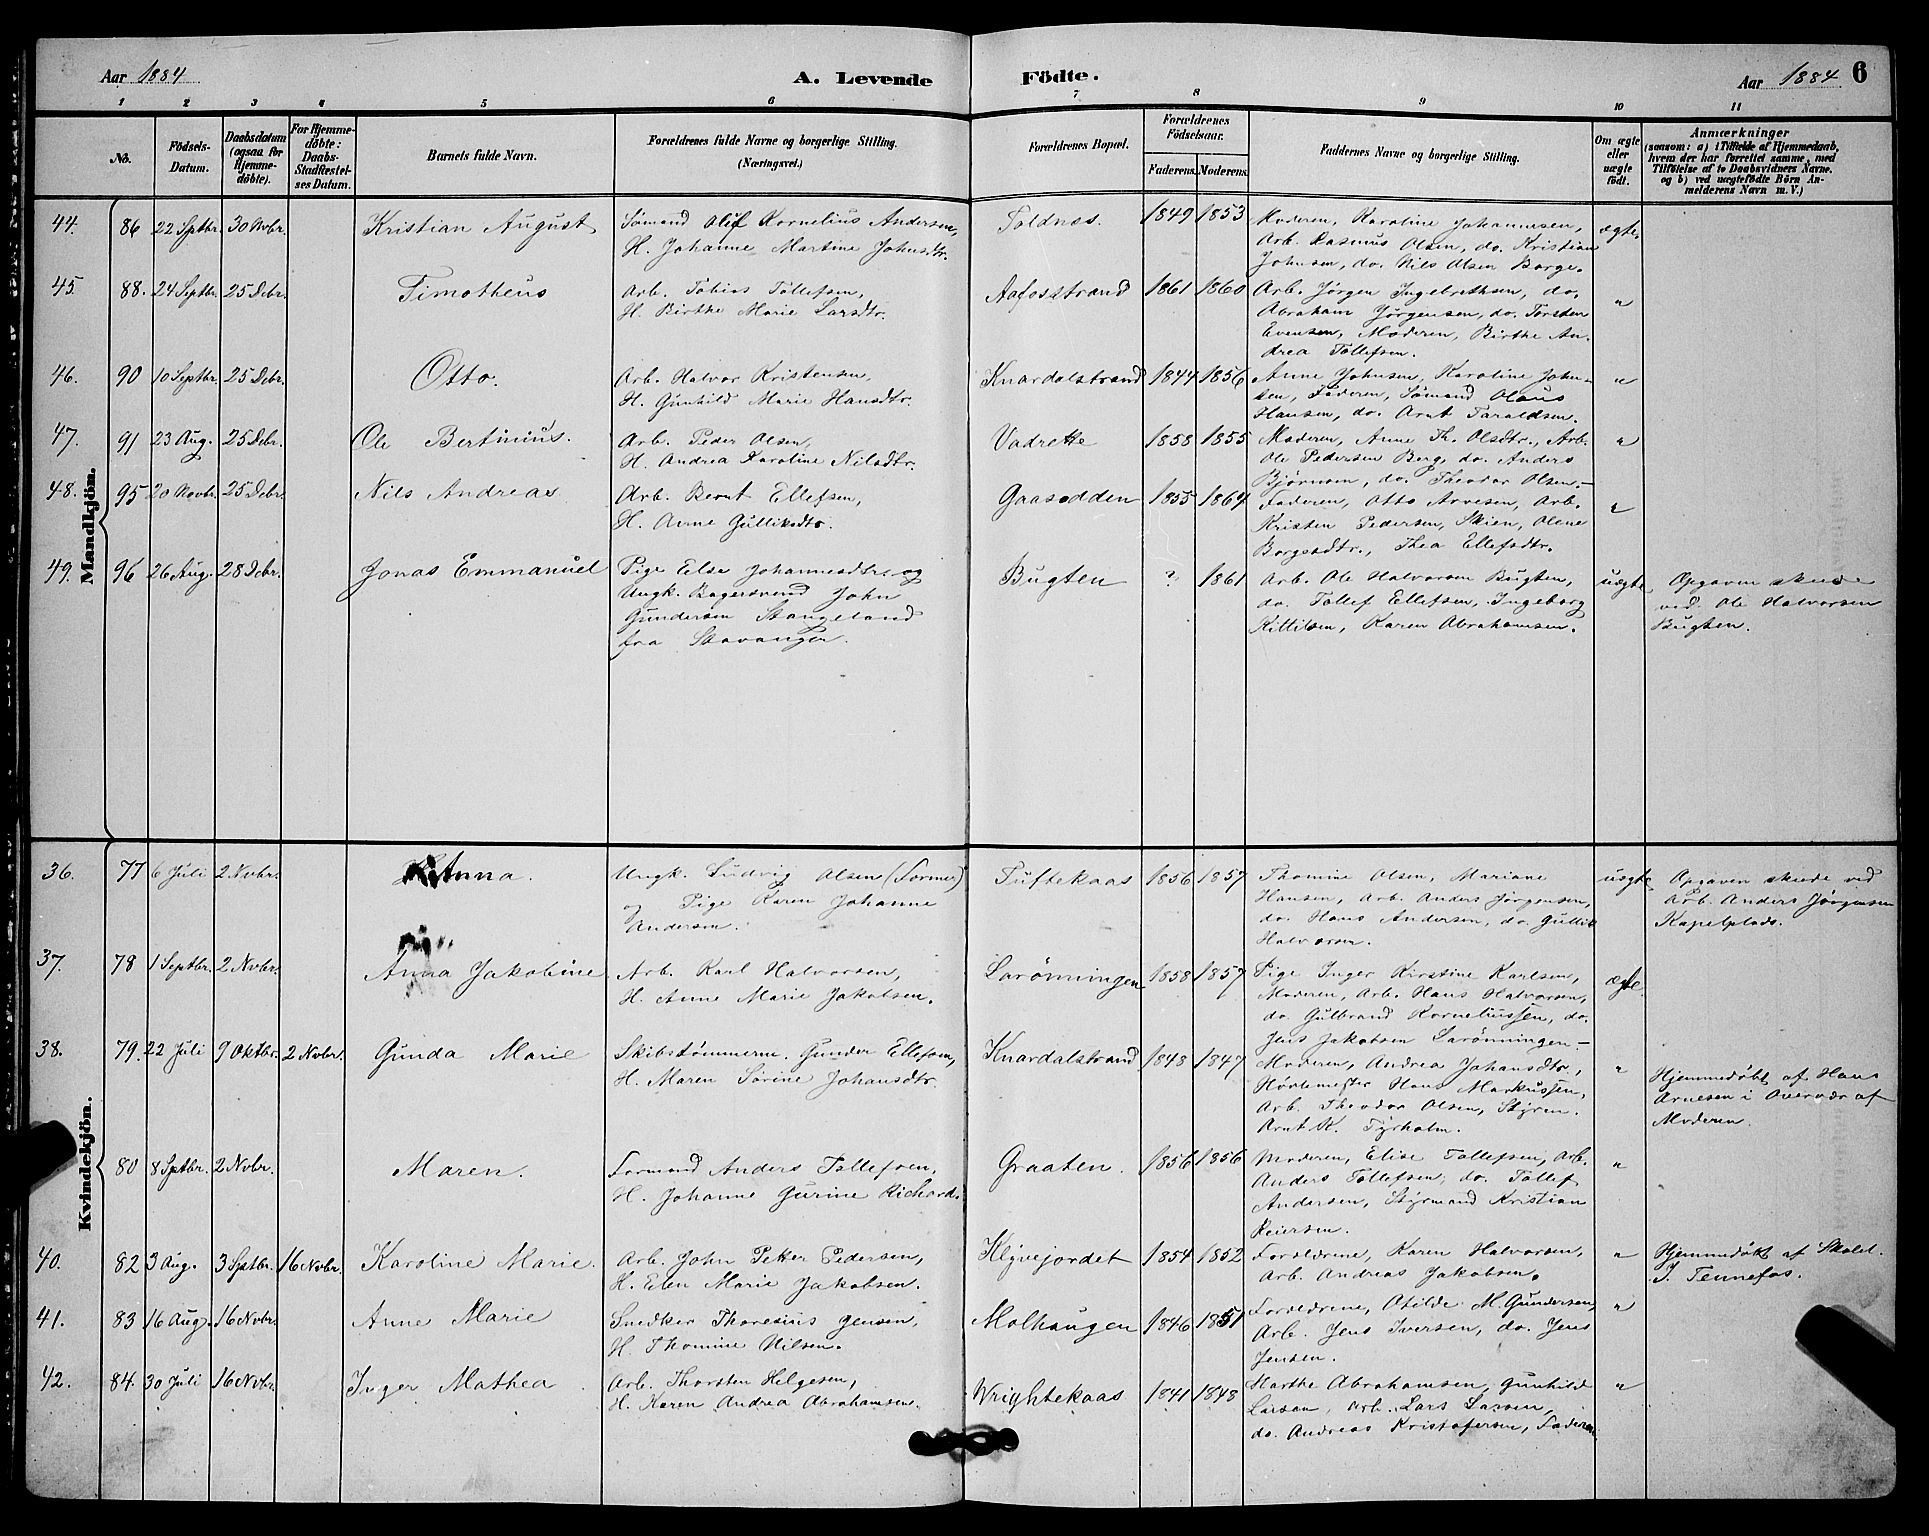 Aar 1884
A. Levende Födte.
Aar 1884 6
1 2 3 4 5 6 7 8 9 10 11
No.
Födsels-Datum.
Daabsdatum (ogsaa for Hjemme-döbte).
For Hjemme-döbte: Daabs-Stadfæstel-ses Datum.
Barnets fulde Navn.
Forældrenes fulde Navne og borgerlige Stilling.
(Næringsvei.)
Forældrenes Bopæl.
Forældrenes Födselsaar.
Faderens. Moderens.
Faddernes Navne og borgerlige Stilling.
Om ægte eller uægte födt.
Anmærkninger
(saasom: a) i Tilfælde af Hjemmedaab,
hvem der har forrettet samme, med
Tilföielse af to Daabsvidners Navne,
og b) ved uægtefödte Börn An-
melderens Navn m. V.)
Mandkjön.
44. 86 22 Septbr. 30 Novbr. Kristian August
Sømand Oluf Kornelius Andersen,
H. Johanne Martine Johnsdtr.
Foldnes. 1849 1853
Moderen, Karoline Johannesen,
Arb. Rasmus Olsen, do. Kristian
Johnsen, do. Nils Olsen Borge.
ægte.
45. 88. 24 Septbr. 25 Debr. Timotheus
Arb. Tobias Tollefsen,
H. Birthe Marie Larsdtr.
Aafosstrand 1861 1860
Arb. Jörgen Ingebrethsen, do.
Abraham Jörgensen, do. Torsten
Evensen, Moderen, Birthe An-
drea Tollefsen.
"
46. 90 10 Septbr. 25 Debr. Otto.
Arb. Halvor Kristensen,
H. Gunhild Marie Hansdtr.
Knardalstrand 1844 1856
Anne Johnsen, Karoline John-
sen, Faderen, Sømand Olaus
Hansen, do. Arnt Taraldsen.
"
47. 91 23 Aug. 25 Debr. Ole Bertinius.
Arb. Peder Olsen,
H. Andrea Karoline Nilsdtr.
Vadrette 1858 1855
Moderen, Anne Th. Olsdtr., Arb.
Ole Pedersen Berg, do. Anders
Bjørnsen, do. Theodor Olsen.-
"
48. 95 20 Novbr. 25 Debr. Nils Andreas
Arb. Bernt Ellefsen,
H. Anne Gulliksdtr.
Gaasodden 1855 1864
Faderen, Otto Arvesen, Arb.
Kristen Pedersen, Skien, Olene
Borgesdtr., Thea Ellefsdtr.
"
49. 96 26 Aug. 28 Debr. Jonas Emmanuel
Pige Else Johannesdtr. og
Ungk. Bagersvend John
Gundersen Stangeland
fra Stavanger.
Bugten ? 1861
Arb. Ole Halvorsen Bugten,
do. Tollef Ellefsen, Ingeborg
Kittilsen, Karen Abrahamsen.
uægte
Opgaven skede
ved Ole Halvorsen
Bugten.
Kvindekjön.
36. 77 6 Juli 2 Novbr. Anna.
Ungk. Ludvig Olsen (Former)
og Pige Karen Johanne
Andersen.
Tuftekaas 1856 1857
Thomine Olsen, Mariane
Hansen, Arb. Anders Jørgensen,
do. Hans Andersen, do. Gullik
Halvorsen.
uægte
Opgaven skede ved
Arb. Anders Jørgensen
Kapelplads.
37. 78 1 Septbr. 2 Novbr. Anna Jakobine
Arb. Karl Halvorsen,
H. Anne Marie Jakobsen.
Larönningen 1858 1857
Pige Inger Kirstine Karlsen,
Moderen, Arb. Hans Halvorsen,
do. Gulbrand Korneliussen, do.
Jens Jakobsen Larönningen.-
ægte.
38. 79. 22 Juli 9 Oktbr. 2 Novbr. Gunda Marie
Skibstömmerm. Gunder Ellefsen,
H. Maren Sørine Johansdtr.
Knardalstrand 1848 1847
Moderen, Andrea Johansdtr,
Hans Markussen,
Arb. Theodor Olsen, Styrm.
Arnt K. Tyrholm.
"
Hjemmedøbt af Hans
Arnesen i Overvær af
Moderen.
80 8 Sptbr. 2 Novbr. Maren.
Formand Anders Tollefsen,
H. Johanne Gurine Richard.
Graaten. 1856 1856
Moderen, Elise Tollefsen, Arb.
Anders Tollefsen, do. Tollef
Andersen, Styrmand Kristian
Reiersen.
"
40. 82 3 Aug. 3 Sptbr. 16 Novbr. Karoline Marie.
Arb. John Petter Pedersen,
H. Elen Marie Jakobsen.
Klyvejordet 1854 1852
Forældrene, Karen Halvorsen,
Arb. Andreas Jakobsen.
"
Hjemmedøbt af Skolel.
J. Tennefos.
41. 83 16 Aug. 16 Novbr. Anne Marie
Snedker Thoresius Jensen,
H. Thomine Nilsen.
Molhaugen 1846 1851
Forældrene, Otilde M. Gundersen,
Arb. Jens Iversen, do. Jens
Jensen.
"
42. 84. 30 Juli 16 Novbr. Inger Mathea
Arb. Thorsten Helgesen,
H. Karen Andrea Abrahamsen.
Wrightekaas 1841 1848
Marthe Abrahamsen, Gunhild
Larsen, Arb. Lars Larsen,
do. Andreas Kristofersen, Faderen
"